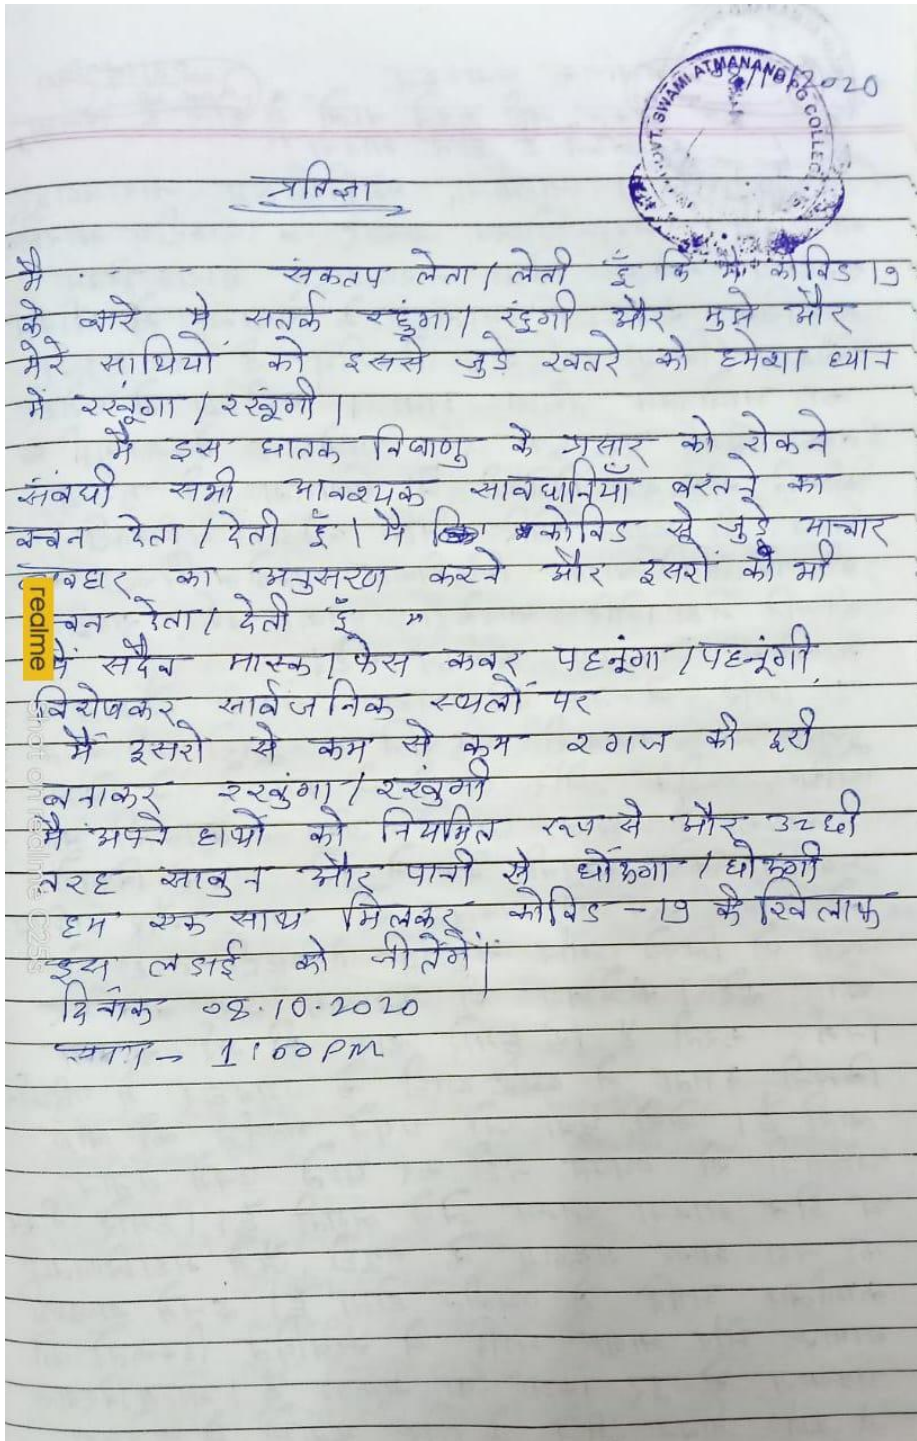 GOVT. SWAMI ATMANAND PG COLLEGE
2020
प्रतिज्ञा
मै संकल्प लेता / लेती हूँ कि मै कोविड 19
के बारे मे सतर्क रहुंगा / रंहुगी और मुझे और
मेरे साथियों को इससे जुड़े खतरे को हमेशा ध्यान
में रखूंगा / रखूंगी |
मै इस घातक विषाणु के प्रसार को रोकने
संबधी सभी आवश्यक सावधानियाँ बरतने का
वचन देता / देती हूँ | मै कोविड से जुड़े आचार
व्यवहार का अनुसरण करने और दुसरों को भी
वचन देता / देती हूँ "
मैं सदैव मास्क / फेस कवर पहनूंगा / पहनूंगी
विशेषकर सार्वजनिक स्थलों पर
मैं दुसरो से कम से कम २ गज की दुरी
बनाकर रखुंगा / रखुंगी
मै अपने हाथों को नियमित रूप से और अच्छी
तरह साबुन और पानी से धोंऊगा / धोऊंगी
हम एक साथ मिलकर कोविड -19 के खिलाफ
इस लडाई को जीतेगें |
दिनांक 08.10.2020
समय - 1:00 PM
realme
Shot on realme C25s